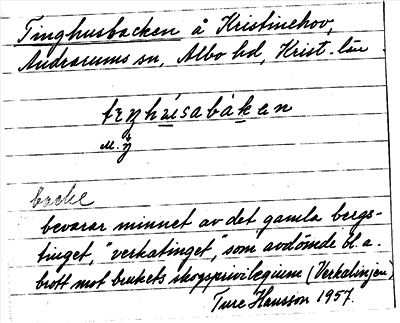 Tinghusbacken å Kristinehov,
Andrarums sn, Albo hd, Krist. län
M.
backe
bevarar minnet av det gamla bergs-
tinget, "verkatinget", som avdömde bl. a.
brott mot brukets skogsprivilegium (Verkalinjen)
Ture Hansson 1957.